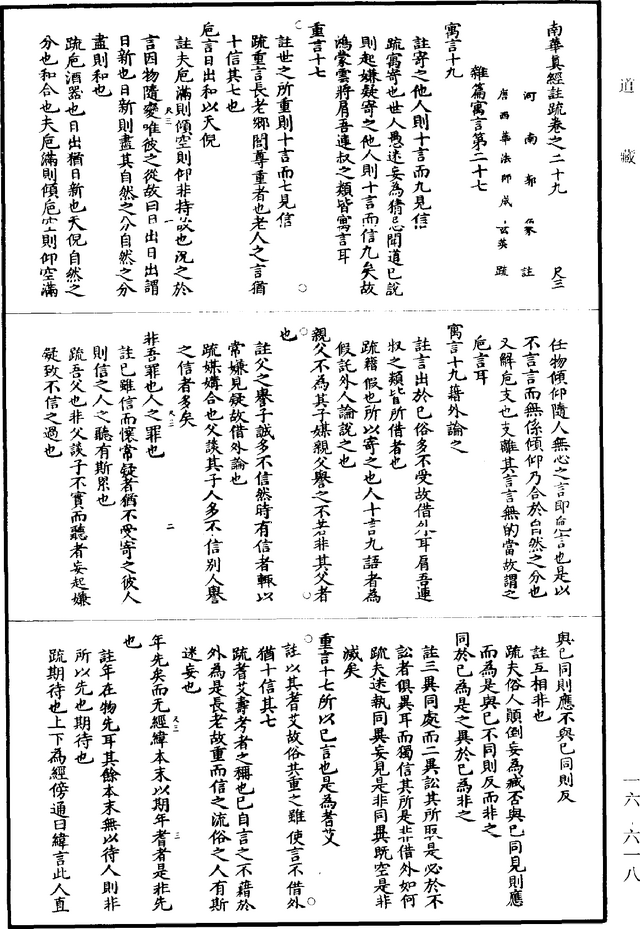 道藏
南華真經註疏卷之二十九　尺三
河南郭象註
唐西華法師成玄英疏
雜篇寓言第二十七
寓言十九
註寄之他人則十言而九見信
疏寓寄也世人愚迷妄為猜忌聞道已說
則起嫌疑寄之他人則十言而信九矣故
鴻蒙雲將肩吾連叔之類皆寓言耳
重言十七
註世之所重則十言而七見信
疏重言長老鄉閭尊重者也老人之言猶
十信其七也
巵言日出和以天倪
註夫巵滿則傾空則仰非持故也況之於
言因物隨變唯彼之從故曰日出日出謂
日新也日新則盡其自然之分自然之分
盡則和也
疏巵酒器也日出猶日新也天倪自然之
分也和合也夫巵滿則傾巵空則仰空滿
尺三　一
任物傾仰隨人無心之言即巵言也是以
不言言而無係傾仰乃合於自然之分也
又解巵支也支離其言言無的當故謂之
巵言耳
寓言十九藉外論之
註言出於已俗多不受故借外耳肩吾連
叔之類皆所借者也
疏藉假也所以寄之也人十言九語者為
假託外人論說之也
親父不為其子媒親父譽之不若非其父者
也
註父之譽子誠多不信然時有信者輒以
常嫌見疑故借外論也
疏媒媾合也父談其子人多不信別人譽
之信者多矣
非吾罪也人之罪也
註已雖信而懷常疑者猶不受寄之彼人
則信之人之聽有斯累也
疏吾父也非父談子不實而聽者妄起嫌
疑致不信之過也
尺三　二
與已同則應不與已同則反
註互相非也
疏夫俗人顛倒妄為臧否與已同見則應
而為是與已不同則反而非之
同於已為是之異於已為非之
註三異同處而二異訟其所取是必於不
訟者俱異耳而獨信其所是非借外如何
疏夫迷執同異妄見是非同異既空是非
滅矣
重言十七所以已言也是為耆艾
註以其耆艾故俗共重之雖使言不借外
猶十信其七
疏耆艾壽考者之稱也已自言之不藉於
外為是長老故重而信之流俗之人有斯
迷妄也
年先矣而无經緯本末以期年耆者是非先
也
註年在物先耳其餘本末無以待人則非
所以先也期待也
疏期待也上下為經傍通曰緯言此人直
尺三　三
一六·六一八